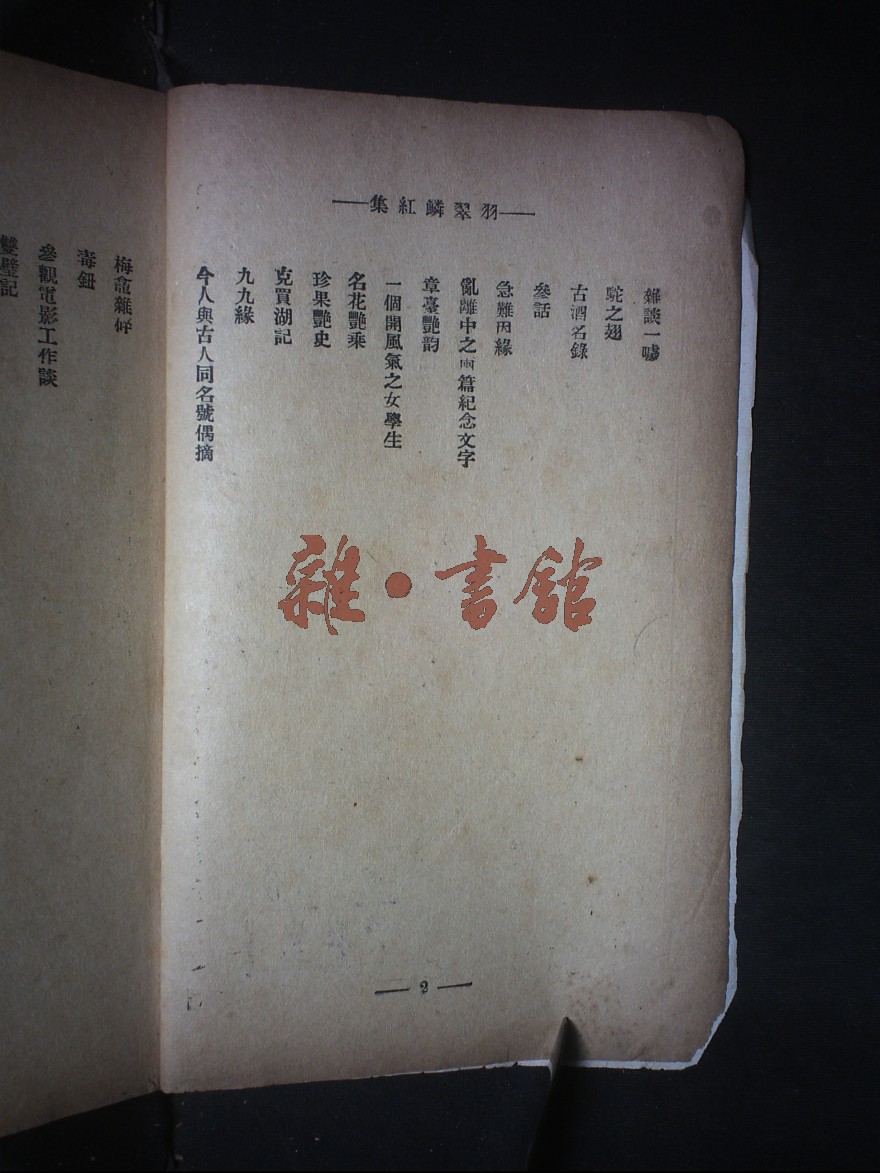 ——羽翠鱗紅集——
雜談一
駝之翅
古酒名錄
參話
急難因緣
亂離中之兩篇紀念文字
章臺艷韵
一個開風氣之女學生
名花艷乘
珍果艷史
克買湖記
九九緣
今人與古人同名號偶摘
— 2 —
梅龕雜
毒鈕
參觀電影工作談
雙璧記
雜·書館